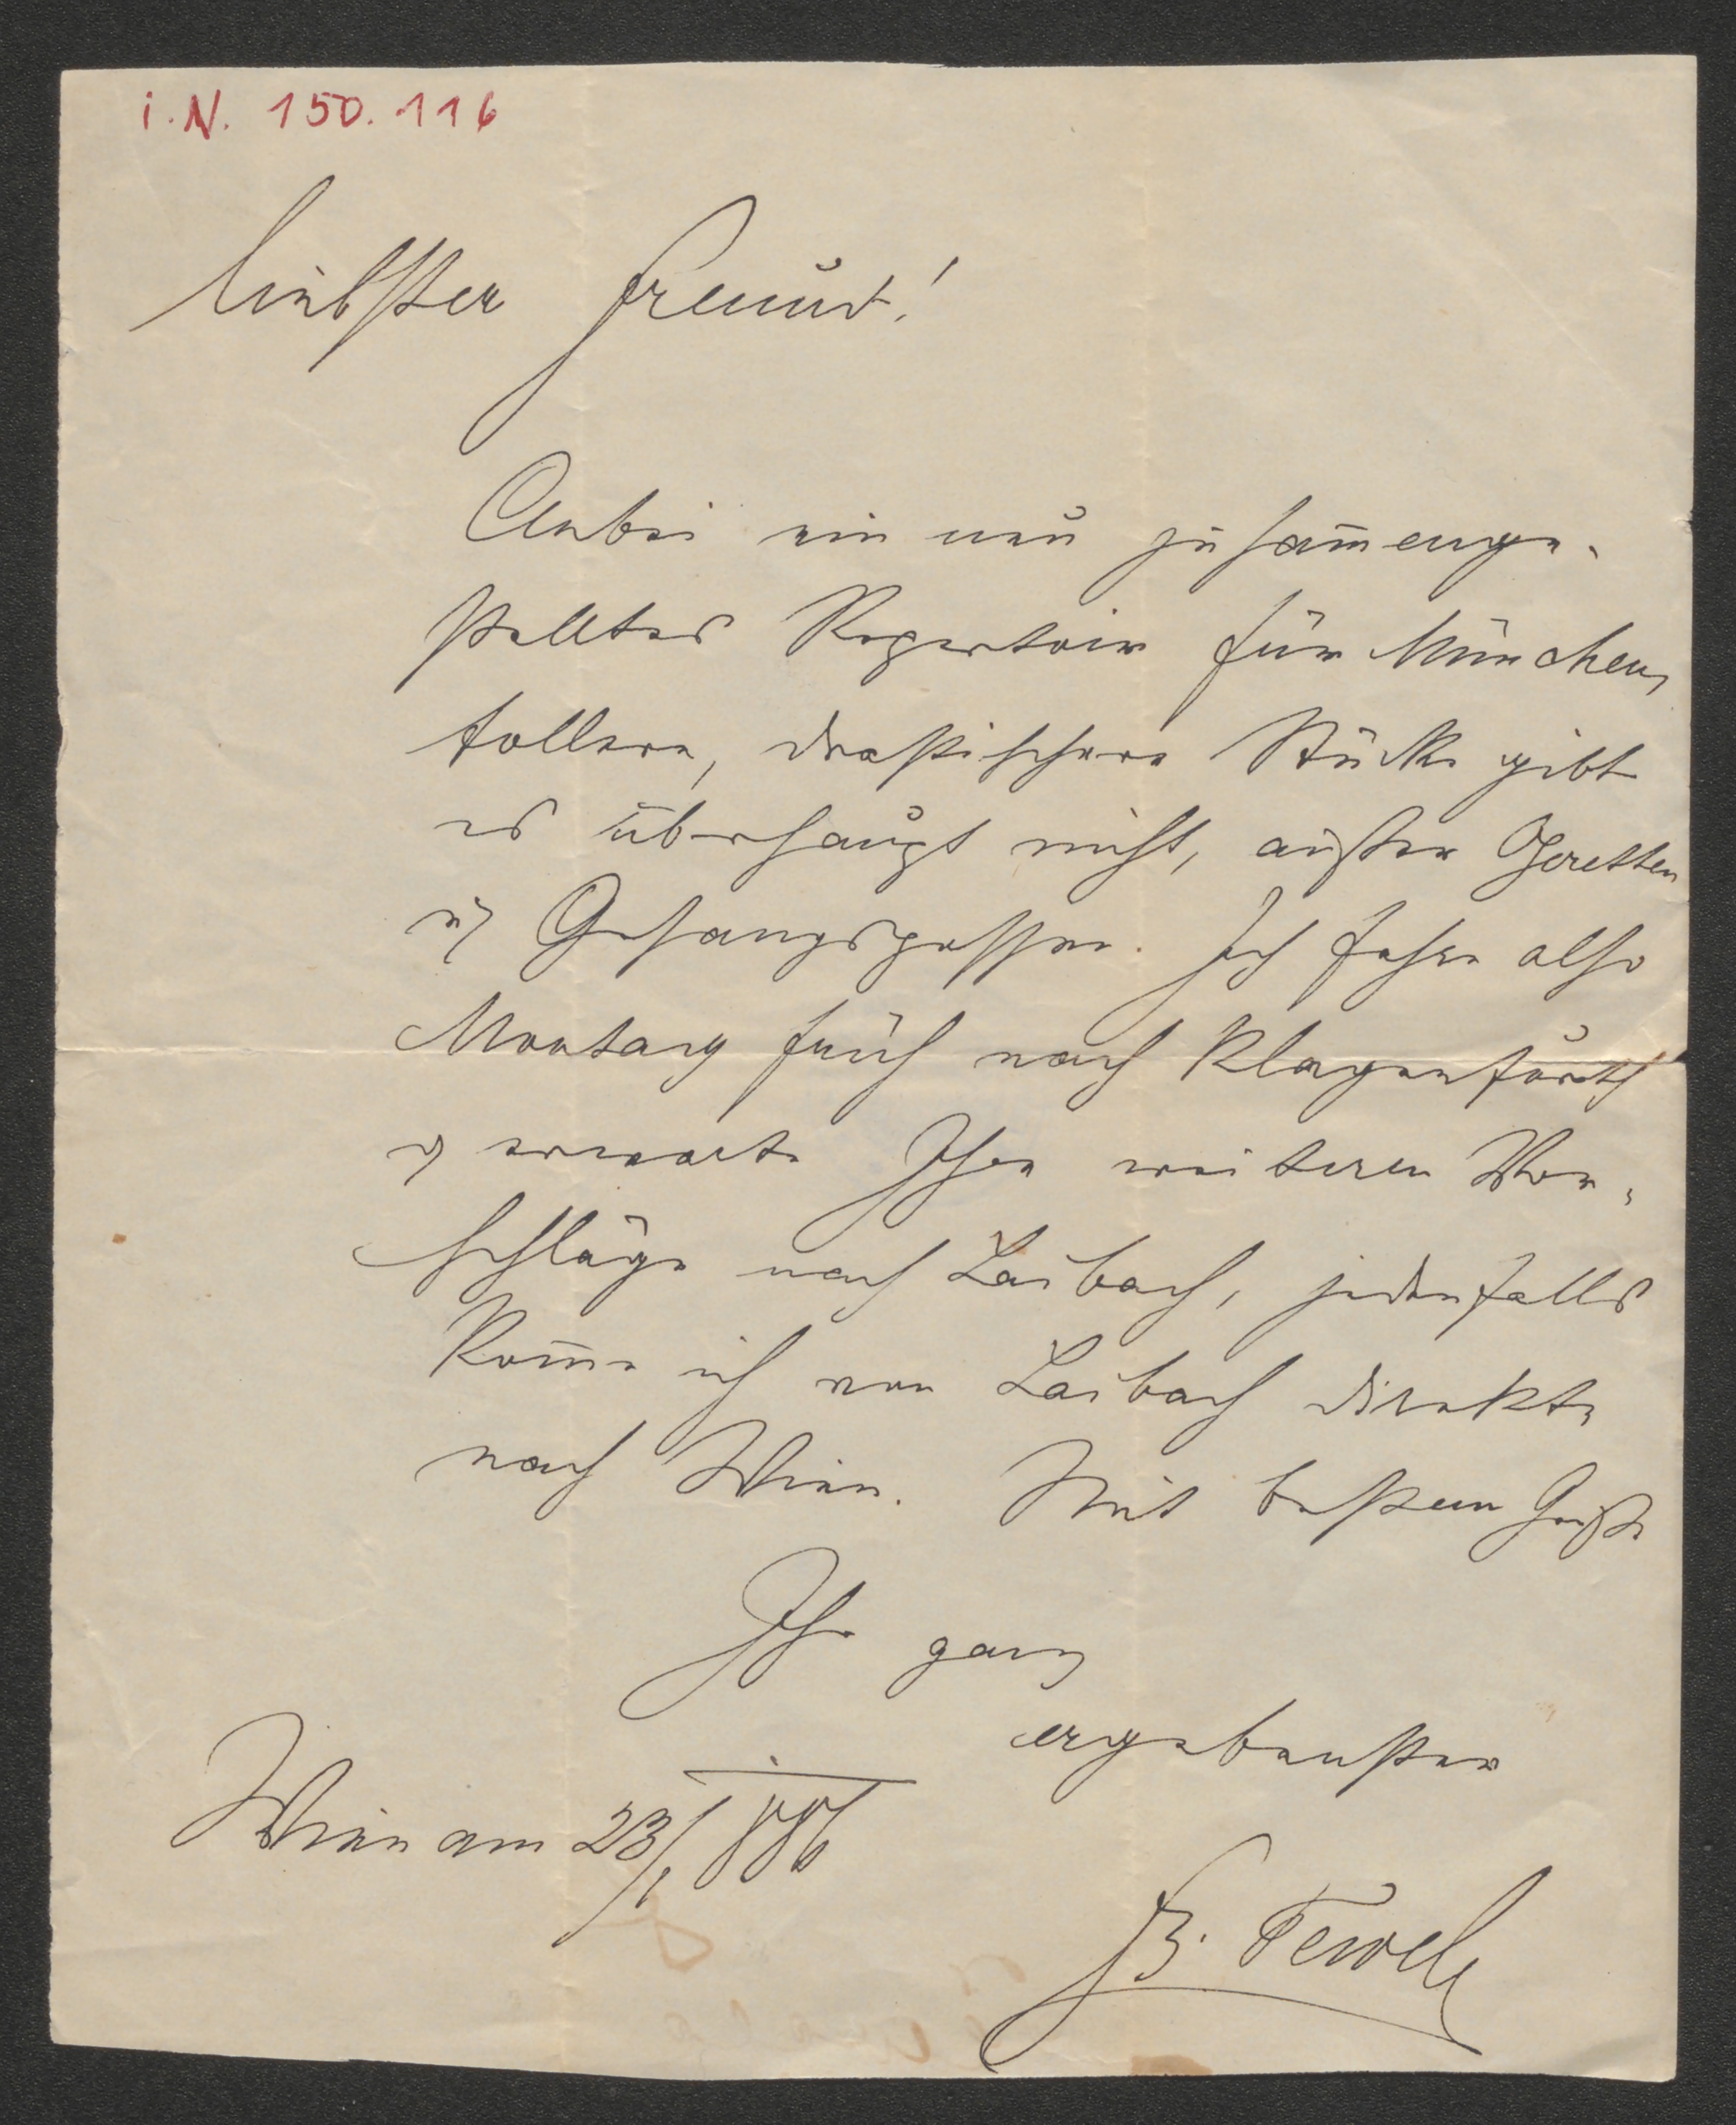 i. N. 150.116
liebster Freund!
Anbei ein neu zusam̅enge-
stelltes Repertoir für München,
tollere, drastischere Stücke gibt
es überhaupt nicht, außer Operetten
u. Gesangspossen. Ich fahre also
Montag früh nach Klagenfurth
u. erwarte Ihre weiteren Vor-
schläge nach Laibach, jedenfalls
kom̅e ich von Laibach direkte
nach Wien. Mit bestem Gruße
Ihr ganz
ergebenster
Wien am 23/1 886
F. Tewele